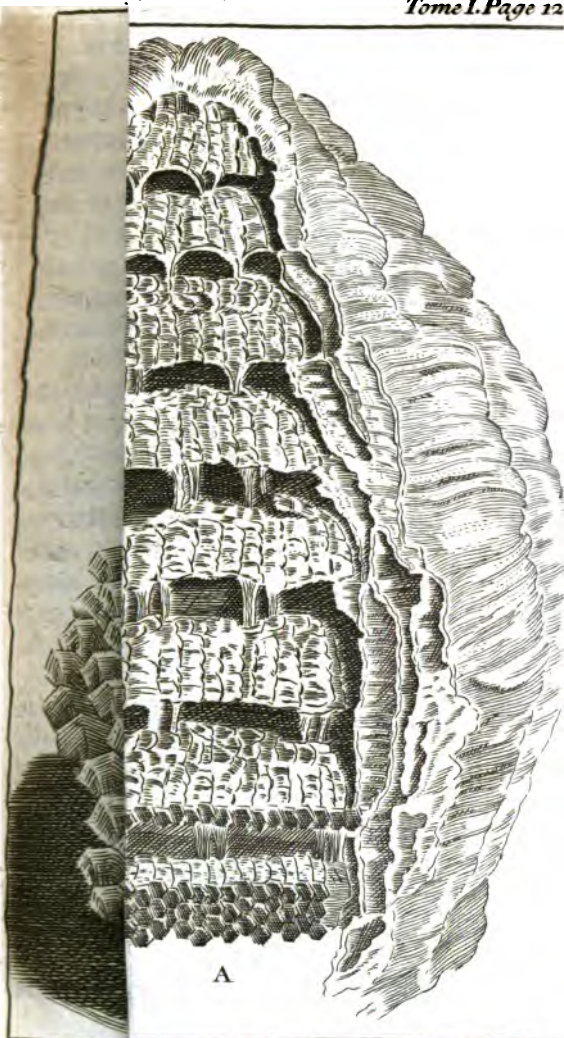 Tome I. Page 12
A